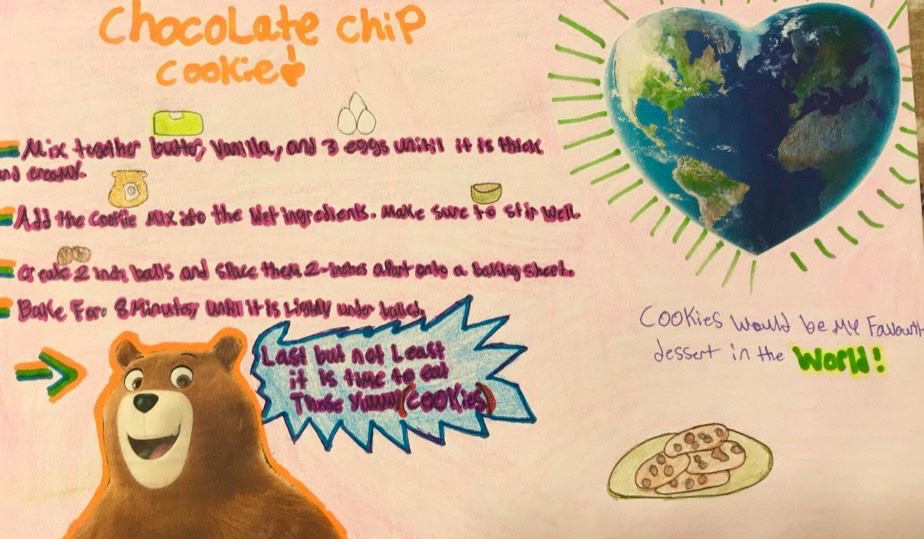 Chocolate chip
cookies
Mix together butter, vanilla, and 3 eggs unitil it is thick
and creamy.
Add the cookie mix into the wet ingredients. Make sure to stir well.
Create 2 inch balls and space them 2-inches apart onto a baking sheet.
Bake For 8 Minutes, until it is Lightly under baked.
Last but not Least
it is time to eat
Those Yummy (cookies)
Cookies would be My Favourit
dessert in the World!